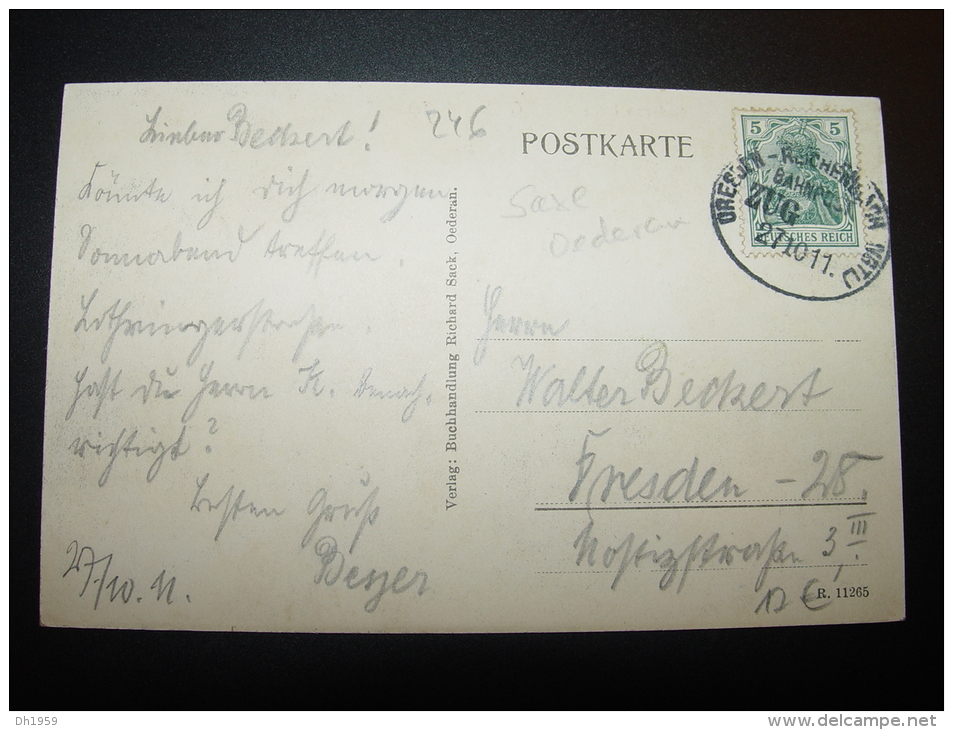 Lieber Beckert!
246
Könnte ich Dich morgen
Sonnabend treffen.
Lothringerstraße.
Hast Du Herrn K. benach-
richtigt?
Besten Gruß
27/10. 11.
POSTKARTE
Saxe
Oederan
5 5
DEUTSCHES REICH
DRESDEN - REICHENBACH (VGTL)
BAHNPOST
ZUG
27 10 11.
Verlag: Buchhandlung Richard Sack, Oederan.
Herrn
Walter Beckert
Dresden - 28.
Nostizstraße 3, III.
12 €
R. 11265
Dh1959
delcampe.net